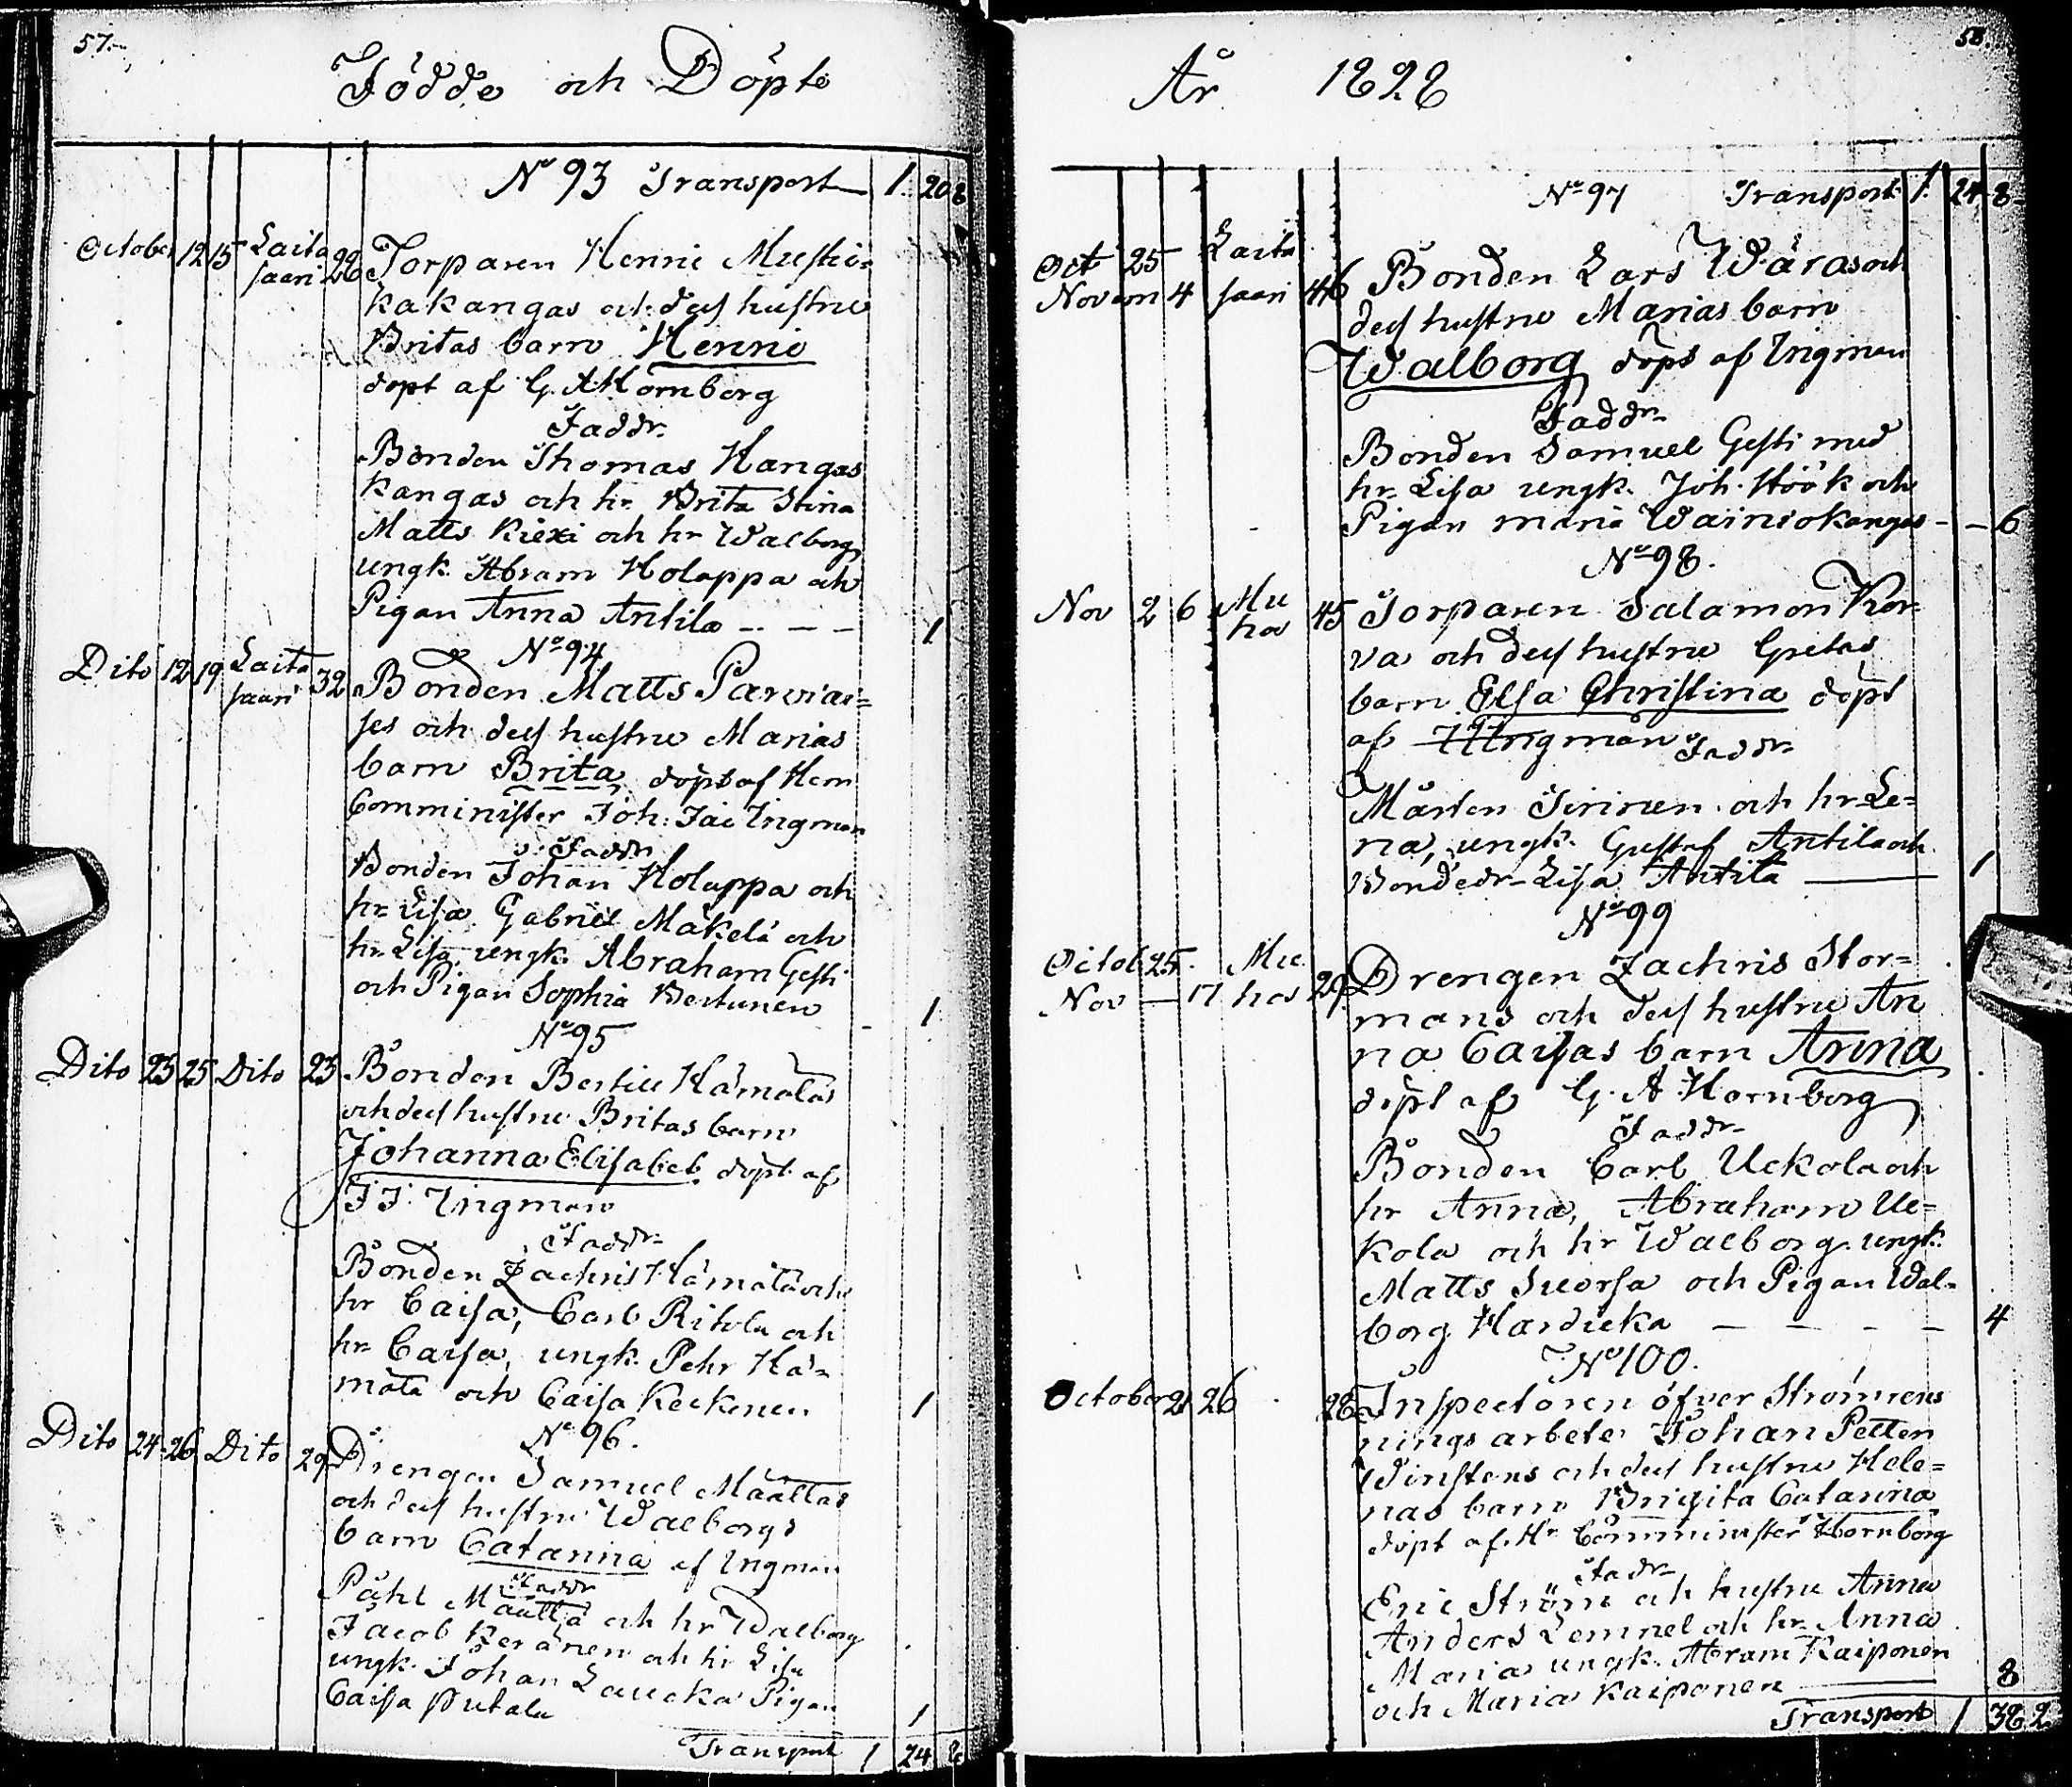 57.
Födde och Döpte
No 93 Transport 1. 20 8
October 12 15 Laitasaari 28 Torparen Henric Mustik
kakangas och dess hustru
Britas barn Henric
döpt af G. A Hornborg
Faddr.
Bonden Thomas Kangas
kangas och hr Brita Stina
Matts Kiexi och hr Walborg
ungk. Abram Holappa och
Pigan Anna Antila - - - 1
No 94
Dito 12 19 Laitasaari 32 Bonden Matts Parviai=
ses och dess hustru Marias
barn Brita döpt af Herr
Comminister Joh: Jac Ingman
Faddr
Bonden Johan Holappa och
hr Lisa Gabriel Mäkelä och
hr Lisa, ungk. Abraham Gesti
och Pigan Sophia Kertunen - 1
No 95
Dito 23 25 Dito 23 Bonden Bertill Hämäläs
och dess hustru Britas barn
Johanna Elisabet döpt af
J J. Ingman
Faddr
Bonden Zachris Hämälä och
hr Caisa, Carl Ritola och
hr Caisa, ungk. Pehr Hä=
mälä och Caisa Keckonen 1
No 96.
Dito 24 26 Dito 29 Drengen Samuel Määttäs
och dess hustru Walborgs
barn Catarina af Ingman
Faddr
Påhl Määttä och hr Walborg
Jacob Keränen och hr Lisa
ungk. Johan Laucka Pigan
Caisa 1
Transport 1 24 8
58.
År 1828
No 97 Transport 1. 24 8
Oct 25 Laita
Novem 4 saari 46 Bonden Lars Wäras och
dess hustru Marias barn
Walborg döpt af Ingman
Faddr
Bonden Samuel Gesti med
hr Lisa ungk. Joh. Höök och
Pigan Maria Wainiokangas - - 6
No 98.
Nov 2 6 Mu
hos 45 Torparen Salamon Kor=
va och dess hustru Gretas
barn Elsa Christina döpt
af J J Ingman Faddr
Mårten Sirinen och hr Le=
na, ungk. Gustaf Antila och
Bondedr Lisa Antila 1
No 99
Octob 25 Mu
Nov - 17 hos 29 Drengen Zachris Stor=
mans och dess hustru An
na Caisas barn Anna
döpt af G. A Hornborg
Faddr
Bonden Carl Uckola och
hr Anna, Abraham Uc=
kola och hr Walborg. ungk.
Matts Suorsa och Pigan Wal=
borg Hardicka - - - - 4
No 100.
October 21 26 28 Inspectoren öfver Strömrens
nings arbetet Johan Petter
Winstens och dess hustru Hele=
nas barn Brigita Catarina
döpt af Hr Comminister Hornborg
Faddr
Eric Ström och hustru Anna
Anders Lemnel och hr Anna
Maria ungk. Abram Kaiponen
och Maria Kaiponen 8
Transport 1 38 2